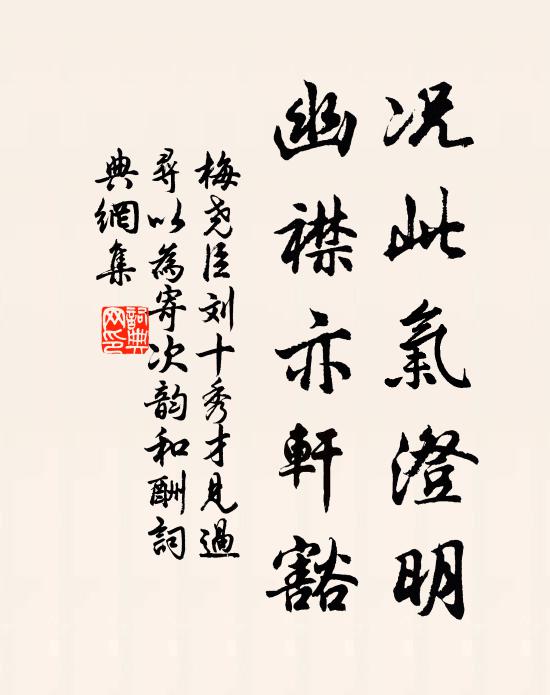 况此氣澄明
幽襟亦軒豁
梅尧臣刘十秀才見過
尋以為寄次韵和酬詞
典網集
詞典
网印